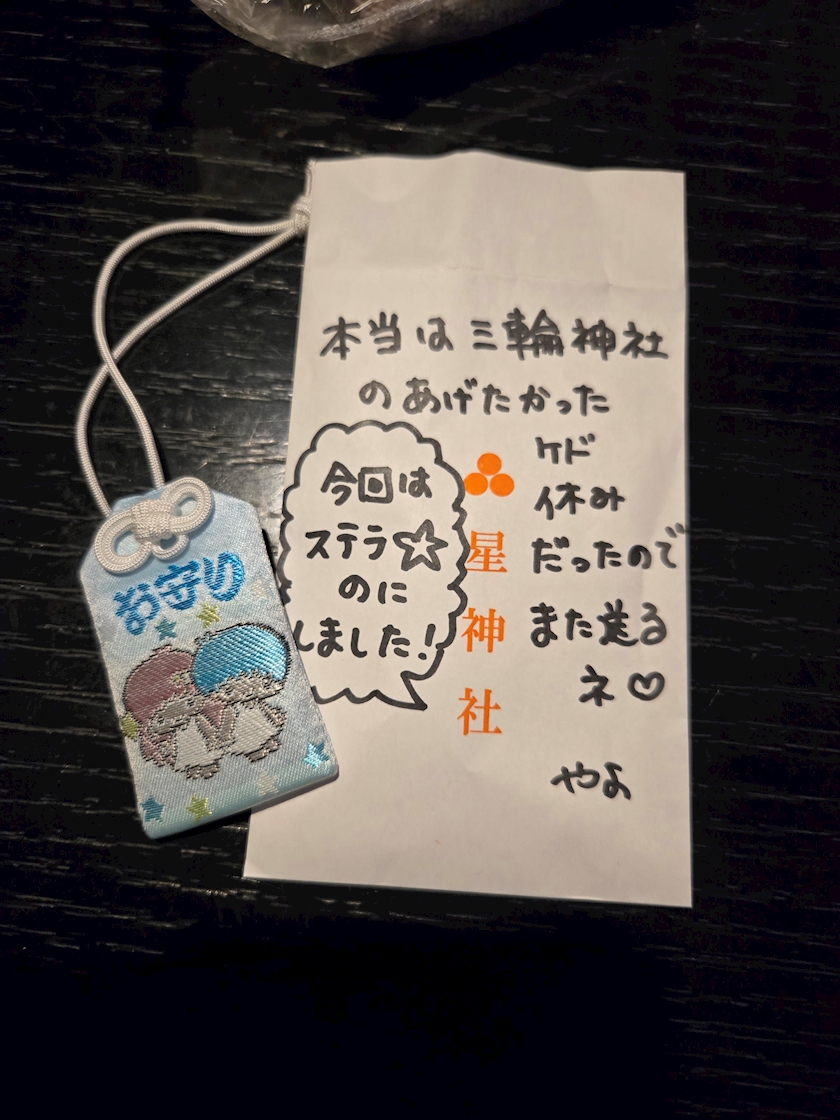 本当は三輪神社
のあげたかった
ケド
休み
だったので
また送る
ネ♡
やよ
今回は
ステラ☆
のに
しました!
星神社
お守り